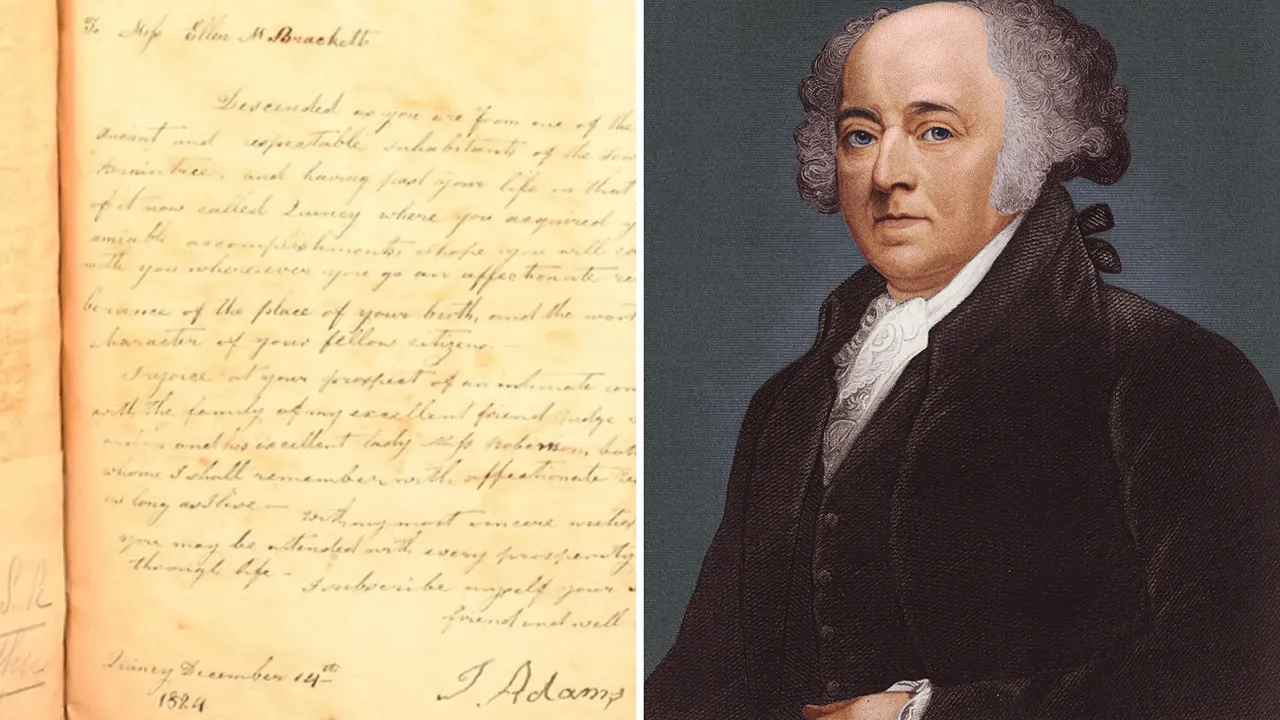 To Miss Ellen M Brackett
Descended as you are from one of the
ancient and respectable inhabitants of the
Braintree, and having past your life in that
of it now called Quincy where you acquired
amiable accomplishments, I hope you will
with you wherever you go an affectionate
berance of the place of your birth, and the
character of your fellow citizens.—
I rejoice at your prospect of an intimate
with the family of my excellent friend Judge
and his excellent lady
whome I shall remember with affectionate
as long as I live — With my most sincere wishes
you may be attended with every prosperity
through life — I subscribe myself your
friend and well
Quincy December 14th
1824
J. Adams
S. R